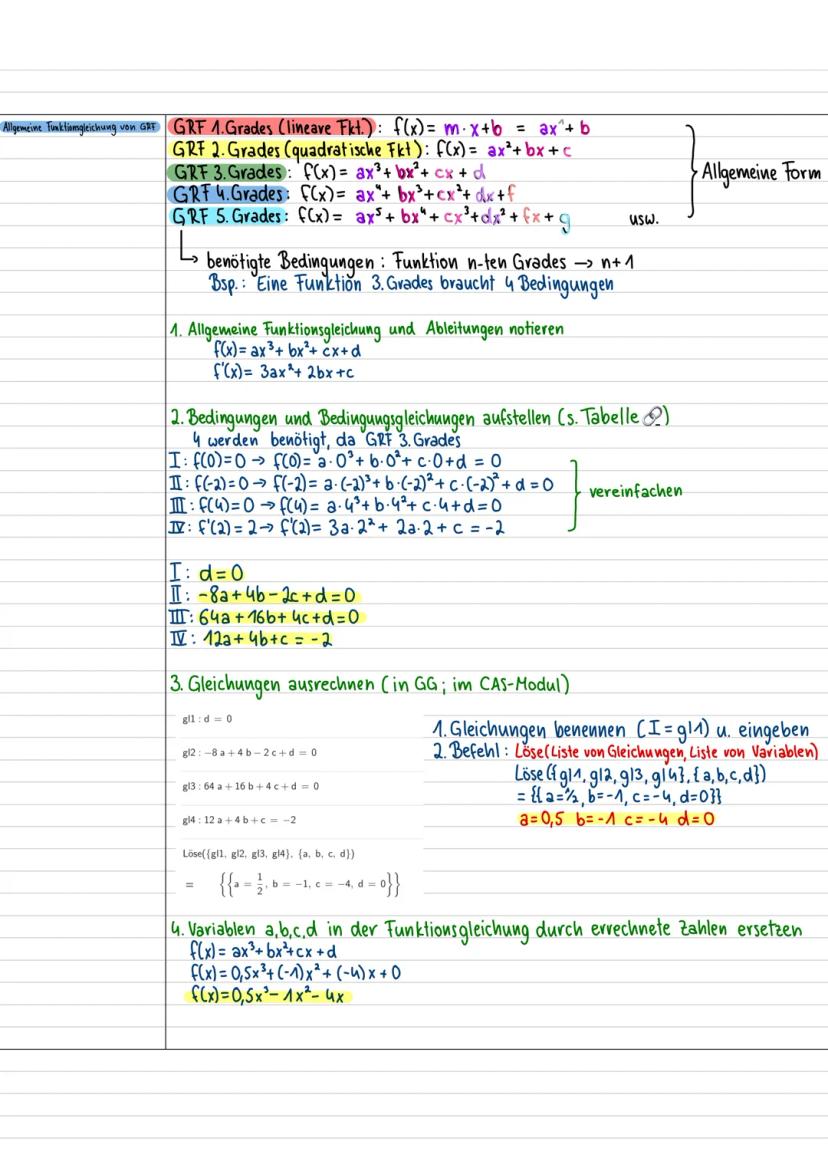 Allgemeine Funktionsgleichung von GRF
GRF 1.Grades (lineare Fkt.): f(x)= m·x+b = ax¹+ b
GRF 2.Grades (quadratische Fkt): f(x)= ax²+bx+c
GRF 3.Grades: f(x)= ax³+ bx²+ cx + d
GRF 4.Grades: f(x)= ax⁴+ bx³+cx²+ dx+f
GRF 5.Grades: f(x)= ax⁵+ bx⁴+ cx³+dx²+ fx+g usw.
Allgemeine Form
↳ benötigte Bedingungen: Funktion n-ten Grades → n+1
Bsp.: Eine Funktion 3.Grades braucht 4 Bedingungen
1. Allgemeine Funktionsgleichung und Ableitungen notieren
f(x)= ax³+ bx²+ cx+d
f'(x)= 3ax²+ 2bx+c
2. Bedingungen und Bedingungsgleichungen aufstellen (s. Tabelle 🔗)
4 werden benötigt, da GRF 3.Grades
I: f(0)=0 → f(0)= a·0³+ b·0²+ c·0+d = 0
II: f(-2)=0 → f(-2)= a·(-2)³+b·(-2)²+c·(-2)²+d=0
III: f(4)=0 → f(4)= a·4³+b·4²+c·4+d=0
IV: f'(2)=2→ f'(2)= 3a·2²+ 2a·2+c = -2
vereinfachen
I: d=0
II: -8a+4b-2c+d=0
III: 64a+16b+4c+d=0
IV: 12a+4b+c = -2
3. Gleichungen ausrechnen (in GG; im CAS-Modul)
gl1 : d = 0
gl2 : −8 a + 4 b − 2 c + d = 0
gl3 : 64 a + 16 b + 4 c + d = 0
gl4 : 12 a + 4 b + c = −2
Löse({gl1, gl2, gl3, gl4}, {a, b, c, d})
= {{a = 1/2, b = −1, c = −4, d = 0}}
1. Gleichungen benennen (I=gl1) u. eingeben
2. Befehl: Löse(Liste von Gleichungen, Liste von Variablen)
Löse({gl1, gl2, gl3, gl4},{a,b,c,d})
= {{a=½, b=-1, c=-4, d=0}}
a=0,5 b=-1 c=-4 d=0
4. Variablen a,b,c,d in der Funktionsgleichung durch errechnete Zahlen ersetzen
f(x)= ax³+bx²+cx+d
f(x)=0,5x³+(-1)x²+(-4)x+0
f(x)=0,5x³-1x²-4x